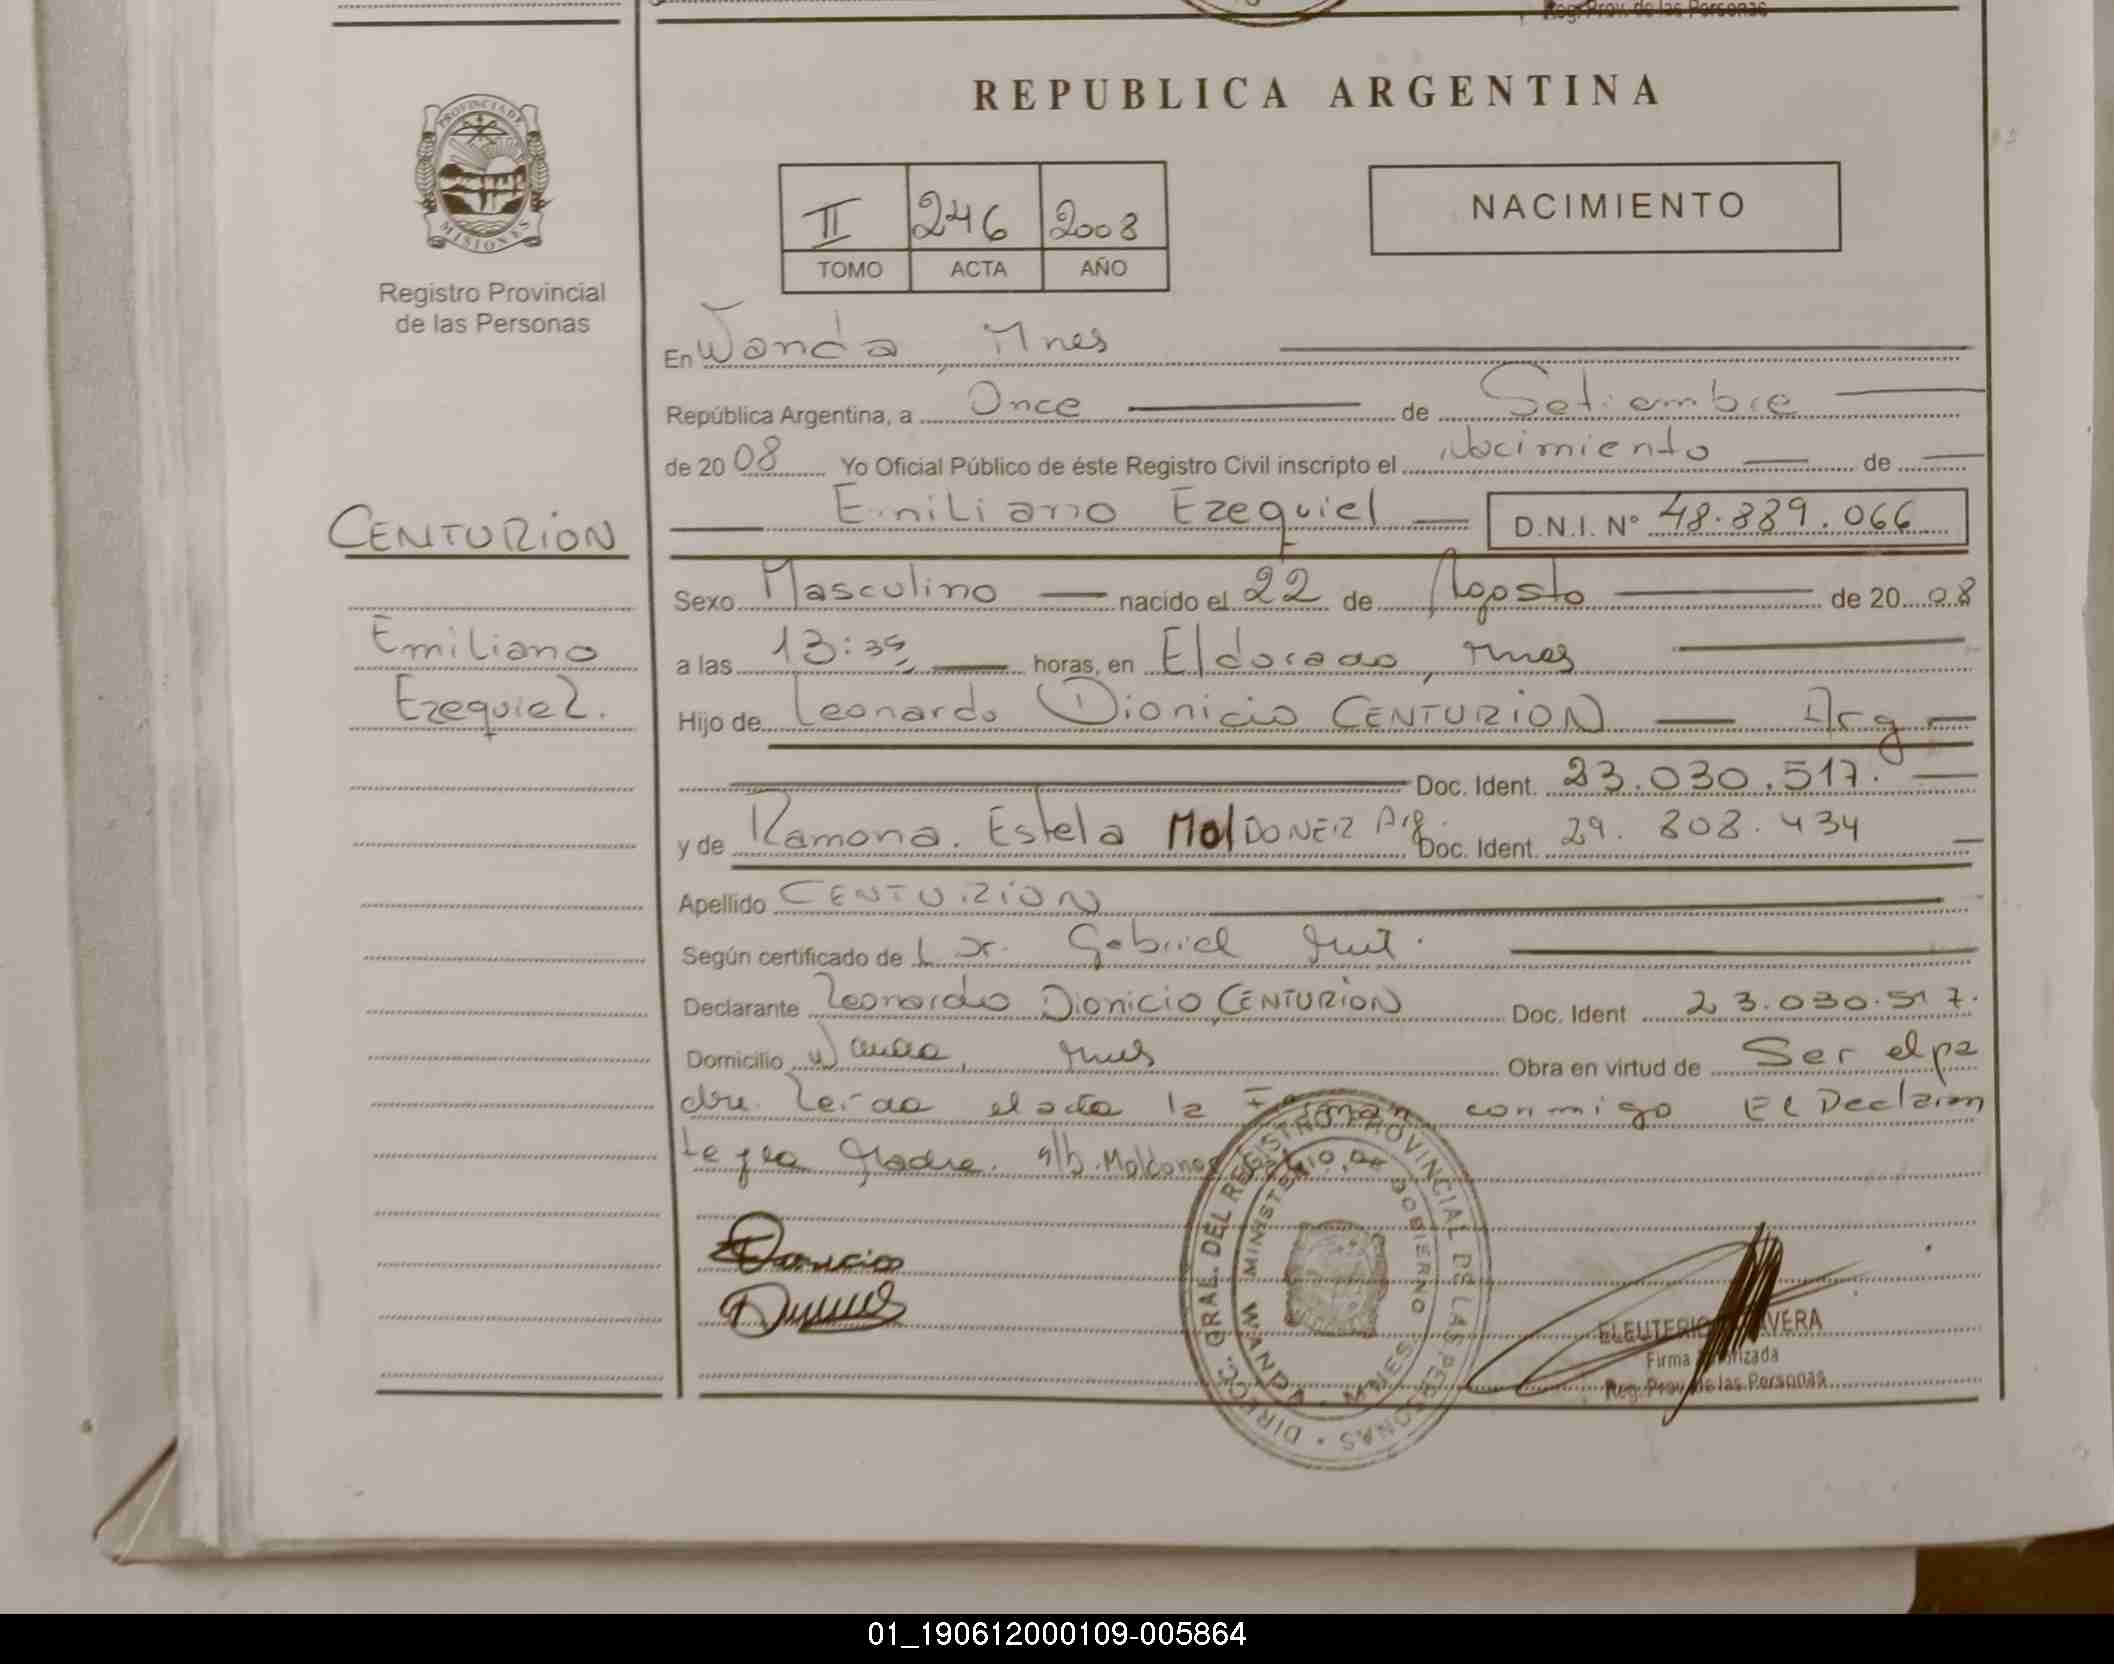 Reg. Prov. de las Personas
REPUBLICA ARGENTINA
PROVINCIA DE
MISIONES
Registro Provincial
de las Personas
II 246 2008
TOMO ACTA AÑO
NACIMIENTO
En Wanda, Mnes
República Argentina, a Once de Setiembre
de 20 08 Yo Oficial Público de éste Registro Civil inscripto el Nacimiento de
Emiliano Ezequiel D.N.I. N° 48.889.066
CENTURION
Emiliano
Ezequiel.
Sexo Masculino nacido el 22 de Agosto de 20 08
a las 13:35 horas, en Eldorado, Mnes
Hijo de Leonardo Dionicio CENTURION Arg
Doc. Ident. 23.030.517.
y de Ramona. Estela MalDONER Arg. Doc. Ident. 29. 808. 434
Apellido CENTURION
Según certificado de Gabriel
Declarante Leonardo Dionicio CENTURION Doc. Ident 23.030.517.
Domicilio Wanda, Mnes Obra en virtud de Ser el pa
dre. Leida el acta la Firman conmigo El Declaran
te y la Madre.
DIRECC. GRAL. DEL REGISTRO PROVINCIAL DE LAS PERSONAS
MINISTERIO DE GOBIERNO
WANDA - MNES.
ELEUTERIO
Firma Autorizada
Reg. Prov. de las Personas
01_190612000109-005864